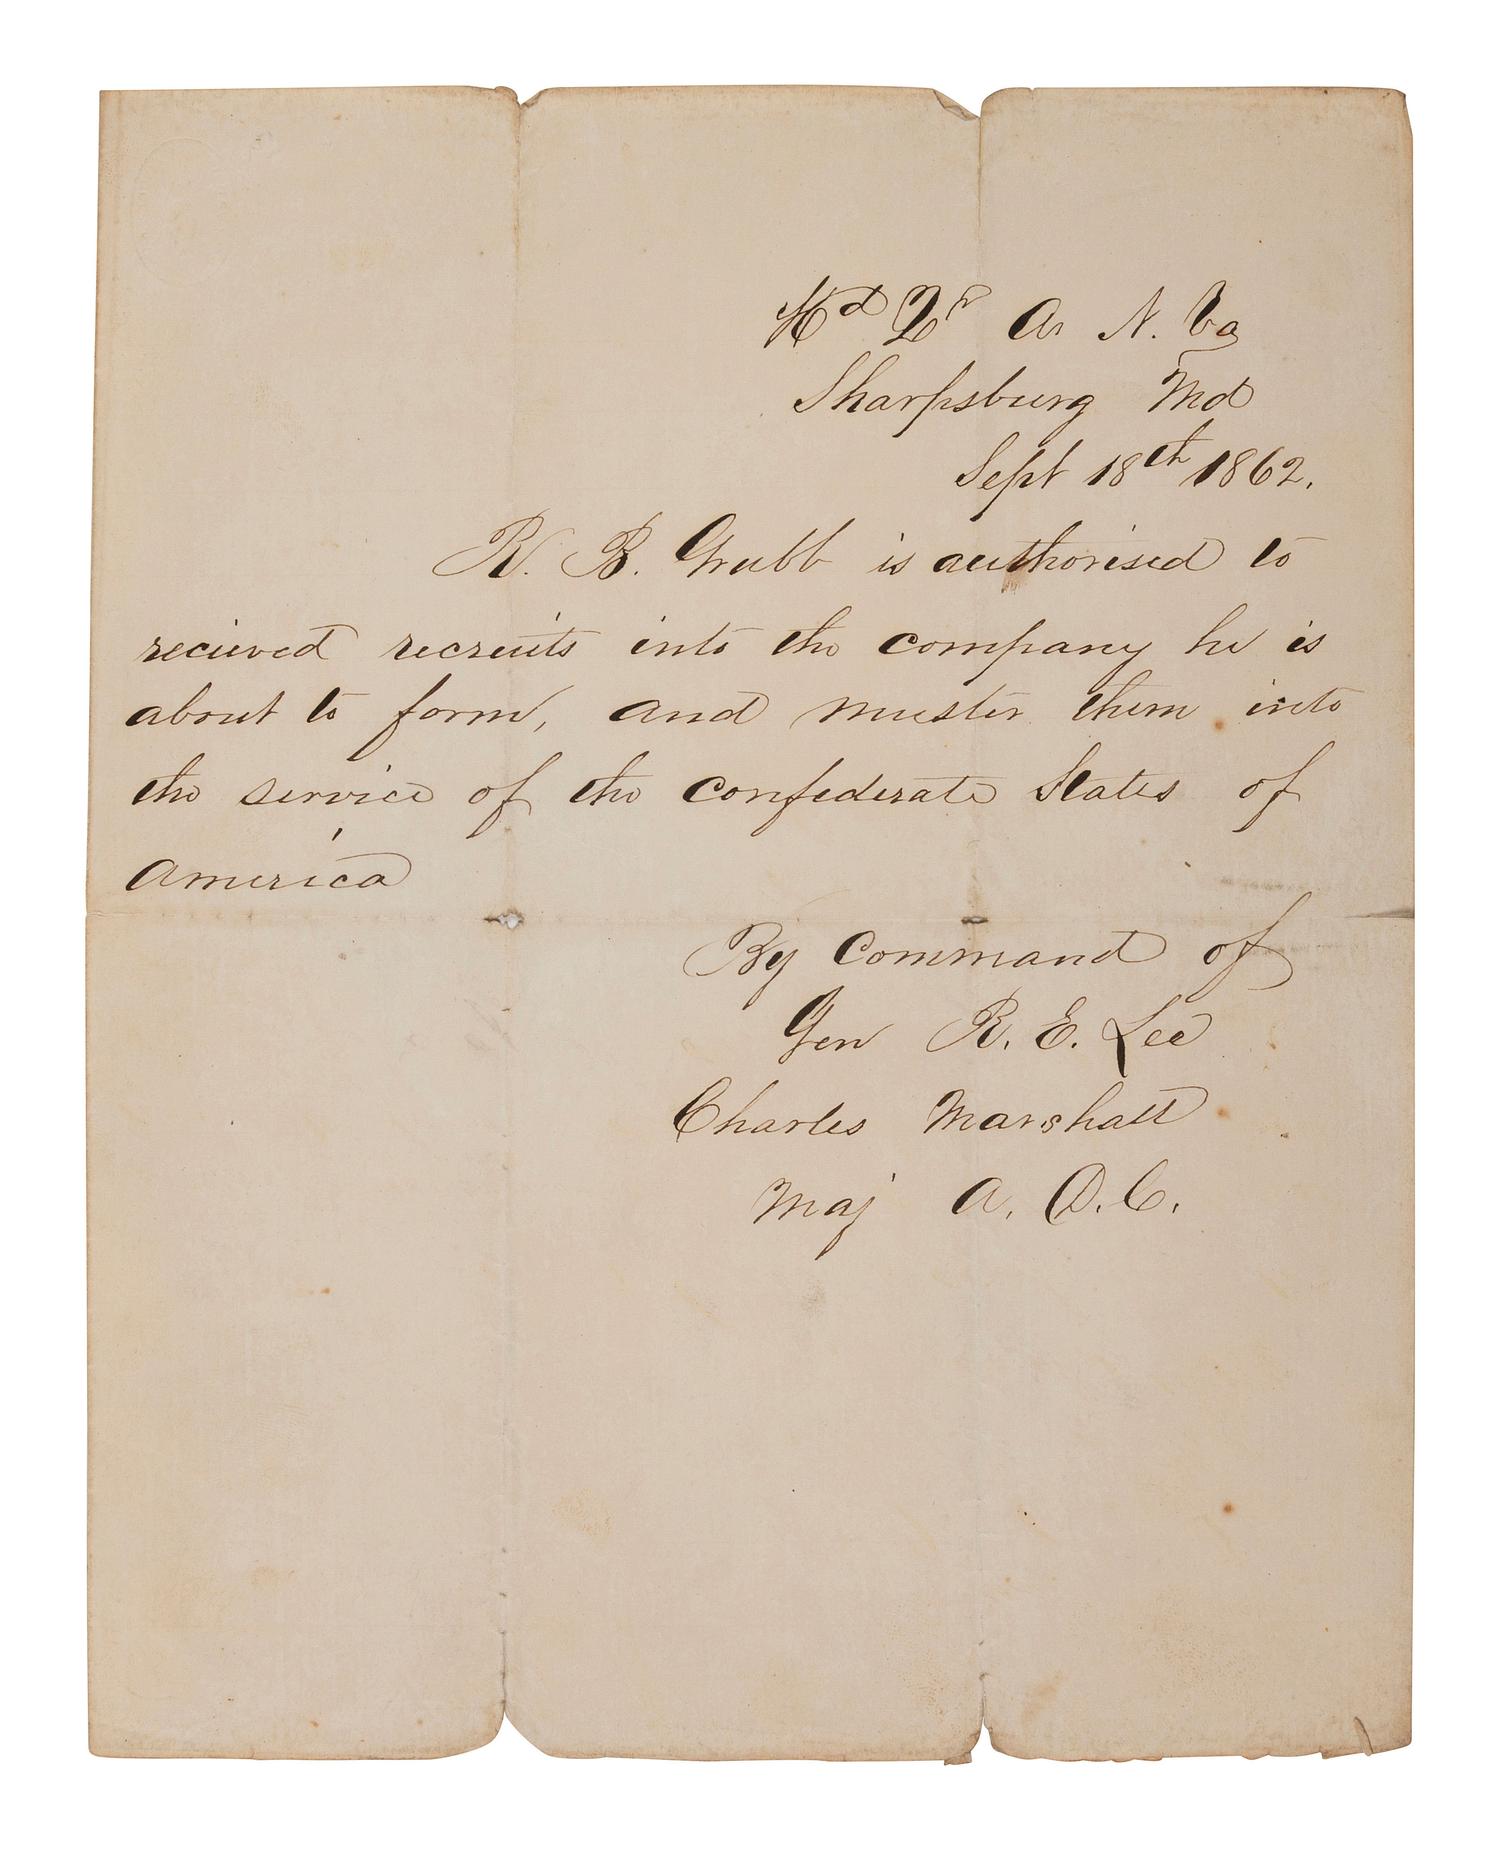 Hd Qr A N. Va
Sharpsburg Md
Sept 18th 1862.
R. B. Grubb is authorised to
recieved recruits into the company he is
about to form, and muster them into
the service of the Confederate States of
America
By Command of
Gen R. E. Lee
Charles Marshall
Maj A. D. C.